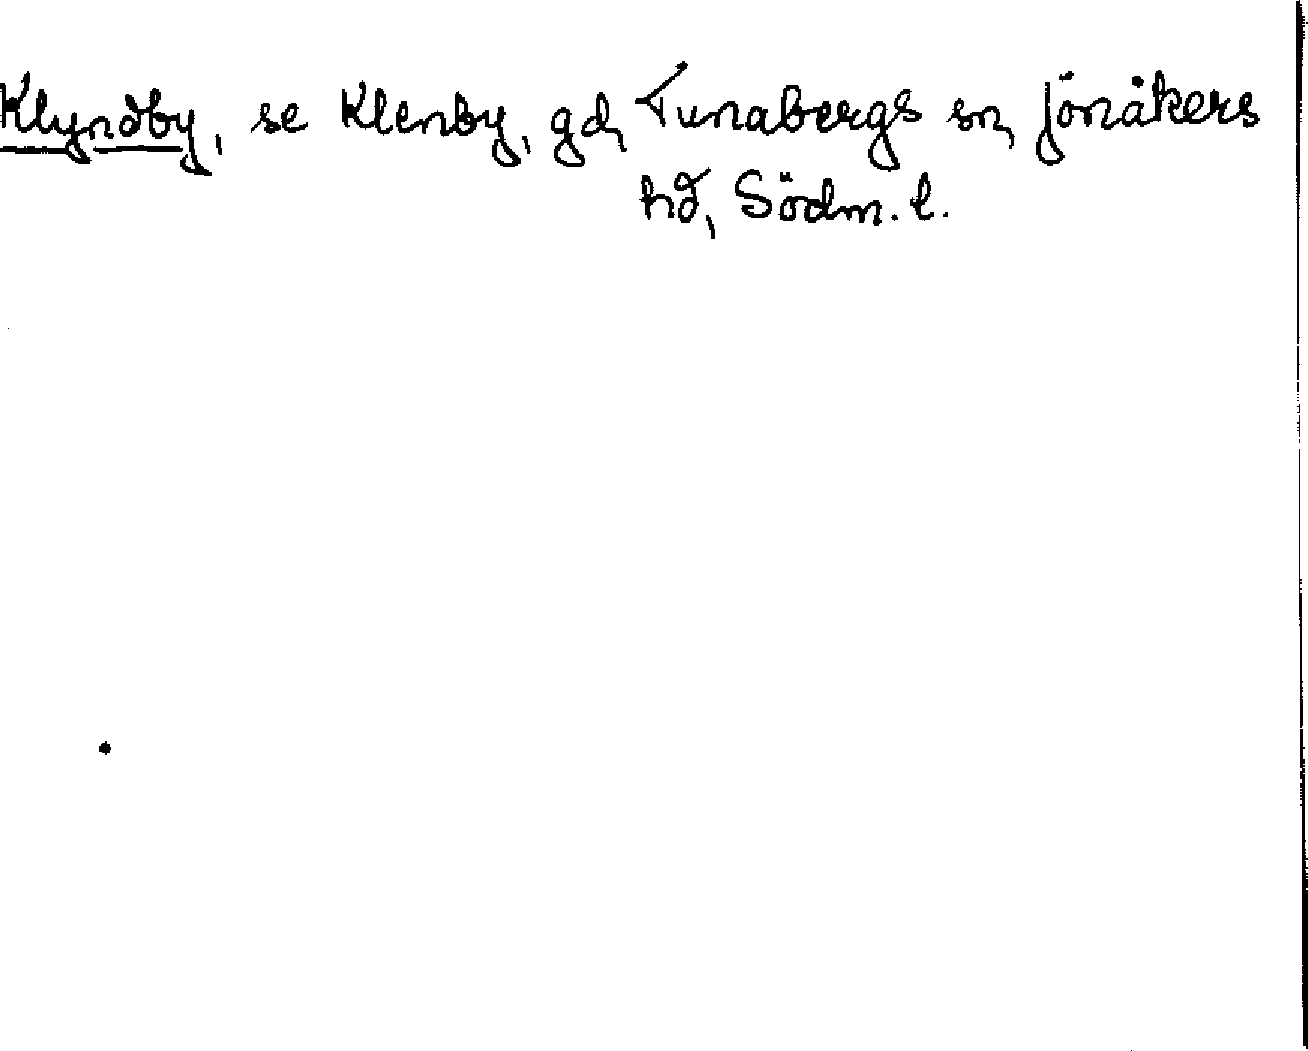 Klyndby, se Klenby, gd, Tunabergs sn, Jönåkers
hd, Södm. l.